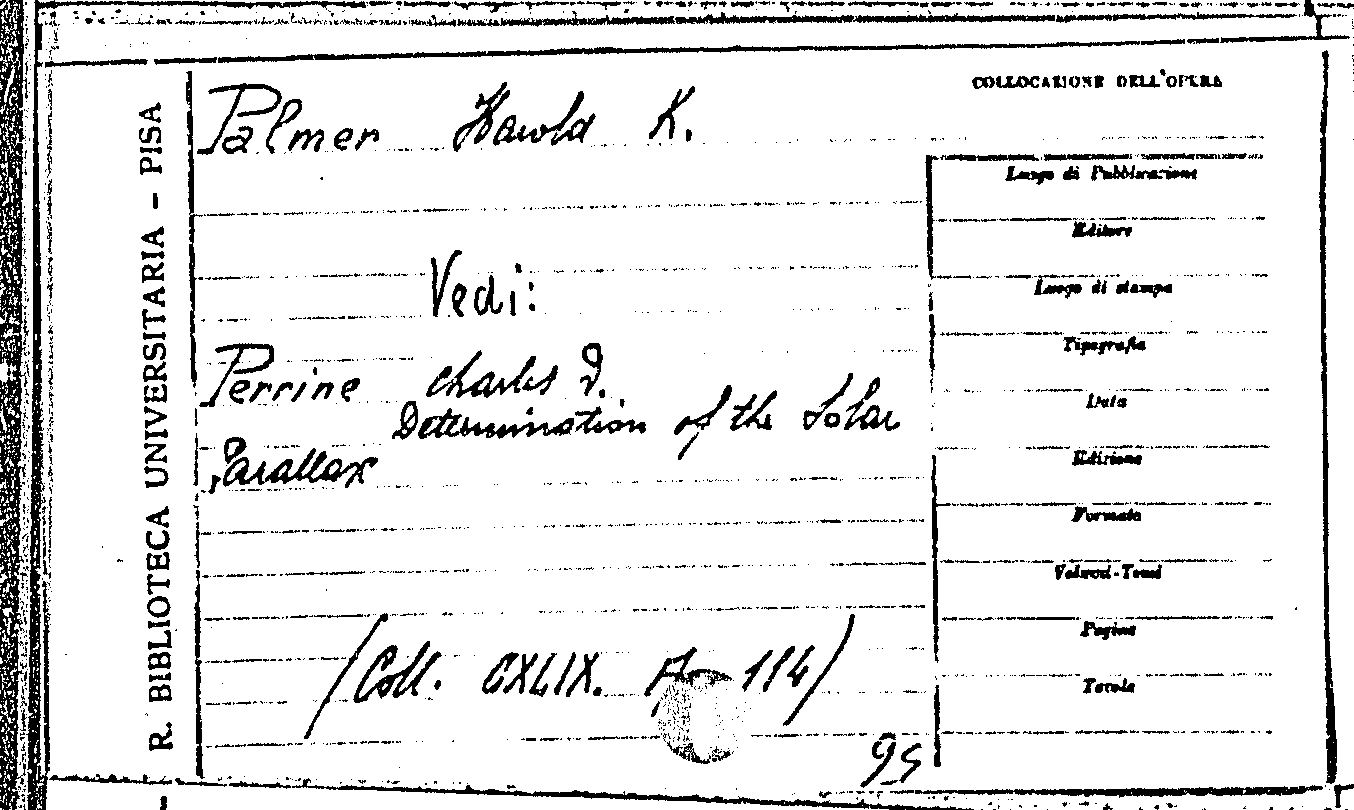 R. BIBLIOTECA UNIVERSITARIA - PISA
COLLOCAZIONE DELL'OPERA
Palmer Harold K.
Vedi:
Perrine Charles D.
Determination of the Solar
Parallax
(Coll. CXLIX. A. 114)
95
Luogo di Pubblicazione
Editore
Luogo di stampa
Tipografia
Data
Edizione
Formato
Volumi-Tomi
Pagine
Tavole